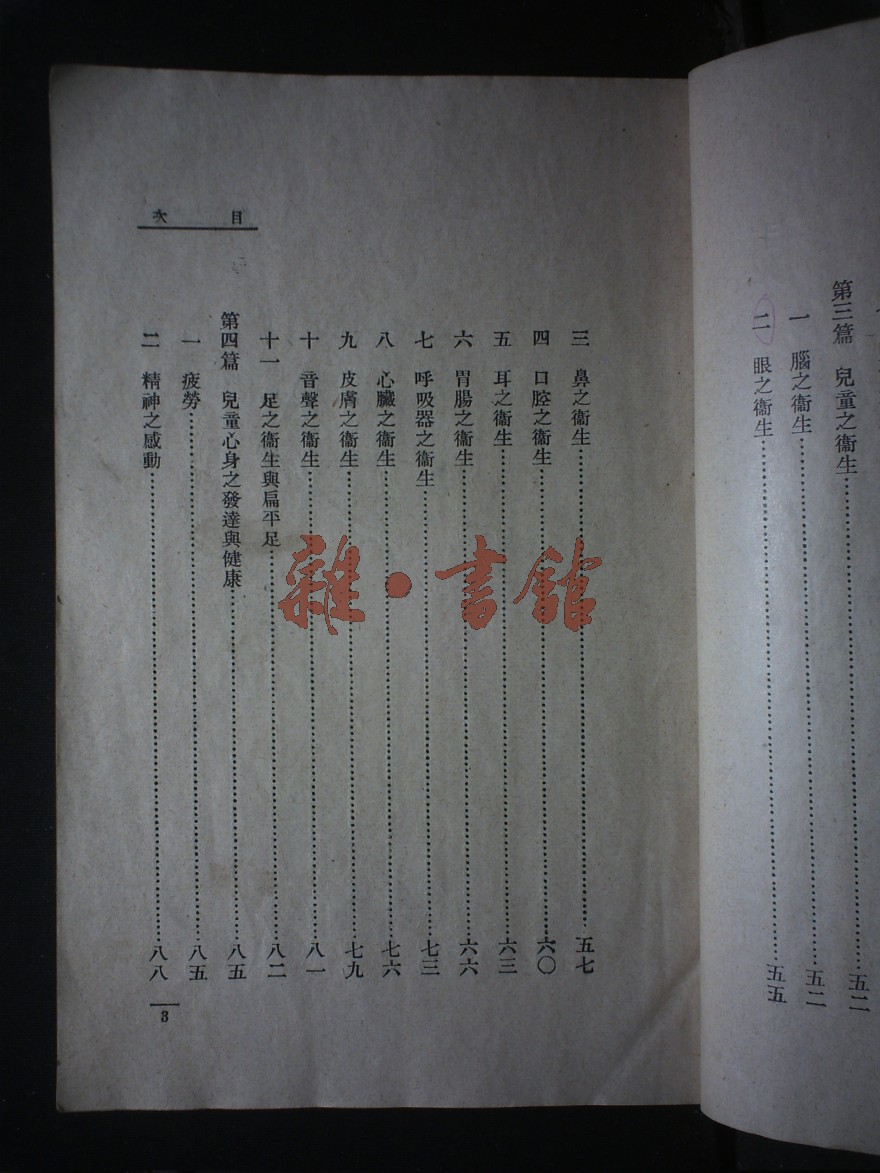 第三篇 兒童之衞生……五二
一 腦之衞生……五二
二 眼之衞生……五五
目次
三 鼻之衞生……五七
四 口腔之衞生……六〇
五 耳之衞生……六三
六 胃腸之衞生……六六
七 呼吸器之衞生……七三
八 心臟之衞生……七六
九 皮膚之衞生……七九
十 音聲之衞生……八一
十一 足之衞生與扁平足……八二
第四篇 兒童心身之發達與健康……八五
一 疲勞……八五
二 精神之感動……八八
3
雜·書館